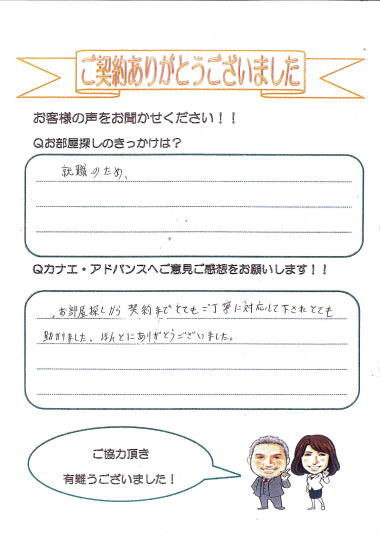 ご契約ありがとうございました
お客様の声をお聞かせください！！
Qお部屋探しのきっかけは？
就職のため、
Qカナエ・アドバンスへご意見ご感想をお願いします！！
お部屋探しから契約までとてもご丁寧に対応して下されとても
助かりました。ほんとにありがとうございました。
ご協力頂き
有難うございました！